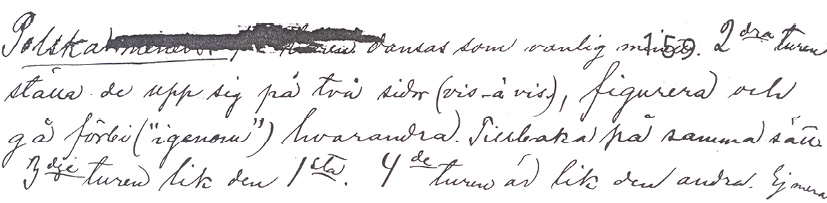 Polska dansas som vanlig 159. 2dra turen
ställa de upp sig på två sidor (vis-à-vis), figurera och
gå förbi ("igenom") hvarandra. Tillbaka på samma sätt
3dje turen lik den 1sta. 4de turen är lik den andra. Ej mera